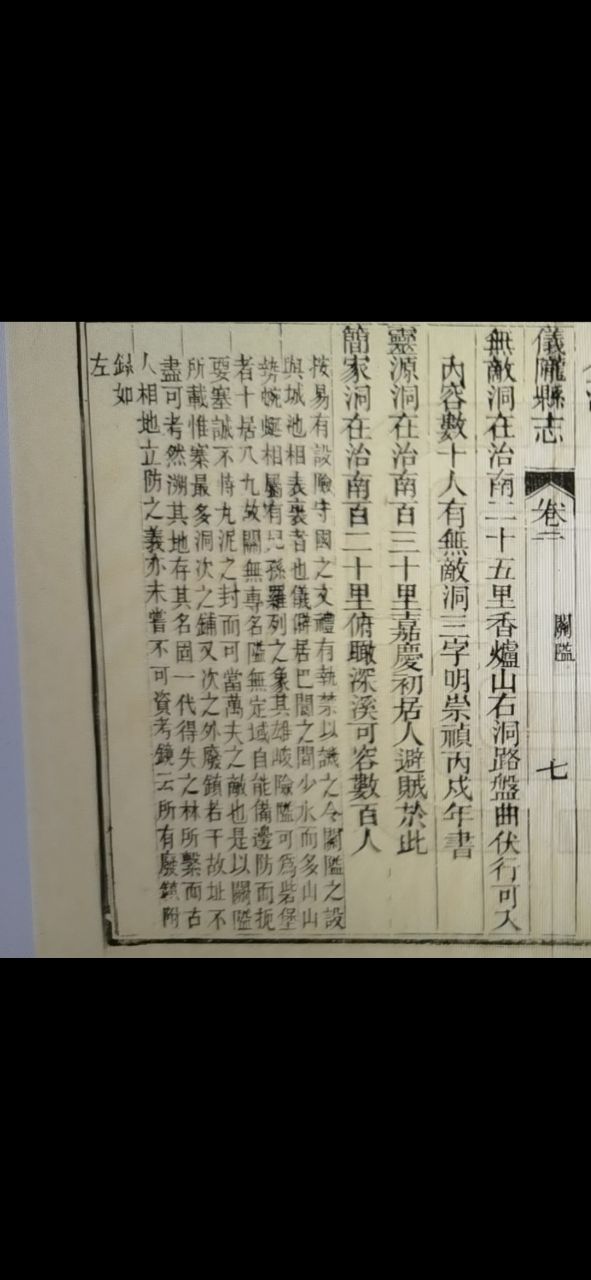 儀隴縣志
卷二
關隘
七
無敵洞在治南二十五里香爐山右洞路盤曲伏行可入
內容數十人有無敵洞三字明崇禎丙戌年書
靈源洞在治南百三十里嘉慶初居人避賊於此
簡家洞在治南百二十里俯瞰深溪可容數百人
按易有設險守國之文禮有執禁以譏之令關隘之設
與城池相表裏者也儀僻居巴閬之間少水而多山山
勢蜿蜒相屬有兒孫羅列之象其雄峻險隘可為砦堡
者十居八九故關無專名隘無定域自能備邊防而扼
要塞誠不恃丸泥之封而可當萬夫之敵也是以關隘
所載惟寨最多洞次之鋪又次之外廢鎮若干故址不
盡可考然溯其地存其名固一代得失之林所繫而古
人相地立防之義亦未嘗不可資考鏡云所有廢鎮附
錄如
左